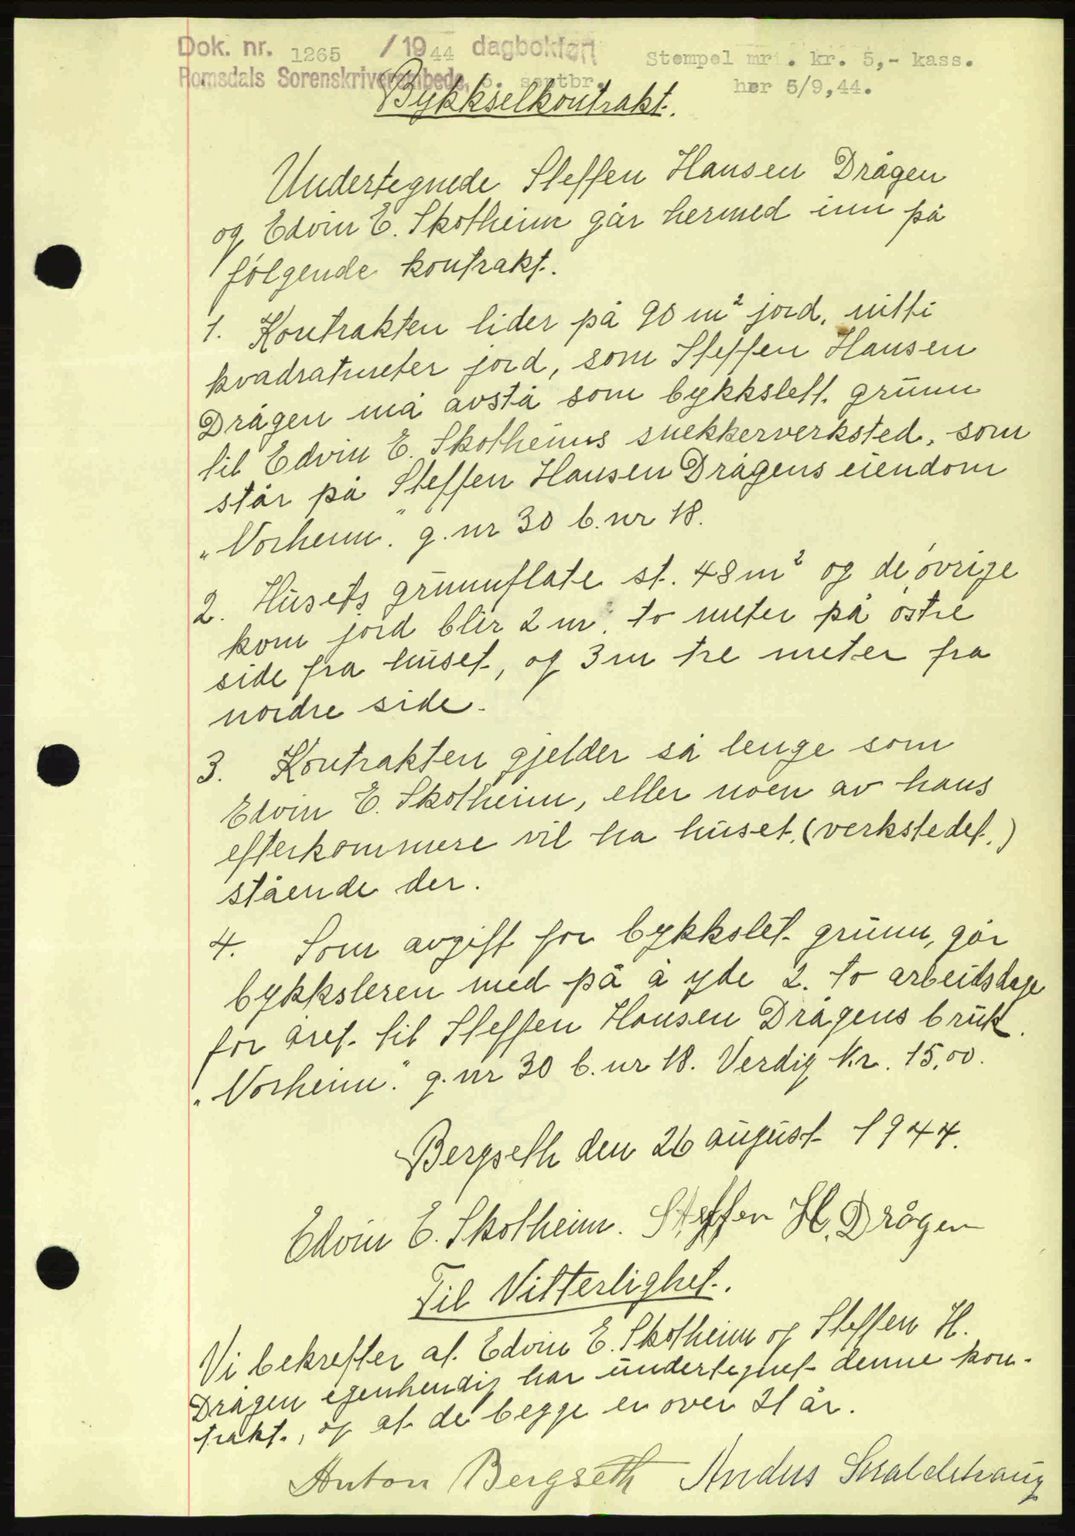 Dok. nr. 1265 / 1944 dagbokført
Stempel mr. kr. 5,- kass.
Romsdals Sorenskriverembede, 6. septbr.
her 5/9,44.
Bykkselkontrakt.
Undertegnede Steffen Hansen Drågen
og Edvin E. Skotheim går hermed inn på
følgende kontrakt.
1. Kontrakten lider på 90 m² jord, nitti
kvadratmeter jord, som Steffen Hansen
Drågen må avstå som bykkslett. grunn
til Edvin E. Skotheims snekkerverksted, som
står på Steffen Hansen Drågens eiendom
"Norheim." g. nr 30 b. nr 18.
2. Husets grunnflate st. 48 m² og de øvrige
kvm jord blir 2 m. to meter på østre
side fra huset, og 3 m tre meter fra
nordre side.
3. Kontrakten gjelder så lenge som
Edvin E. Skotheim, eller noen av hans
efterkommere vil ha huset. (verkstedet.)
stående der.
4. Som avgift for bykkslet. grunn, går
bykksleren med på å yde 2. to arbeidsdage
for året til Steffen Hansen Drågens bruk.
"Norheim." g. nr 30 b. nr 18. Verdig Kr. 15,00.
Bergseth den 26 august 1944.
Edvin E. Skotheim. Steffen H. Drågen
Til Vitterlighet.
Vi bekrefter at Edvin E. Skotheim og Steffen H.
Drågen egenhendig har undertegnet denne kon-
trakt., og at de begge er over 21 år.
Anton Bergseth